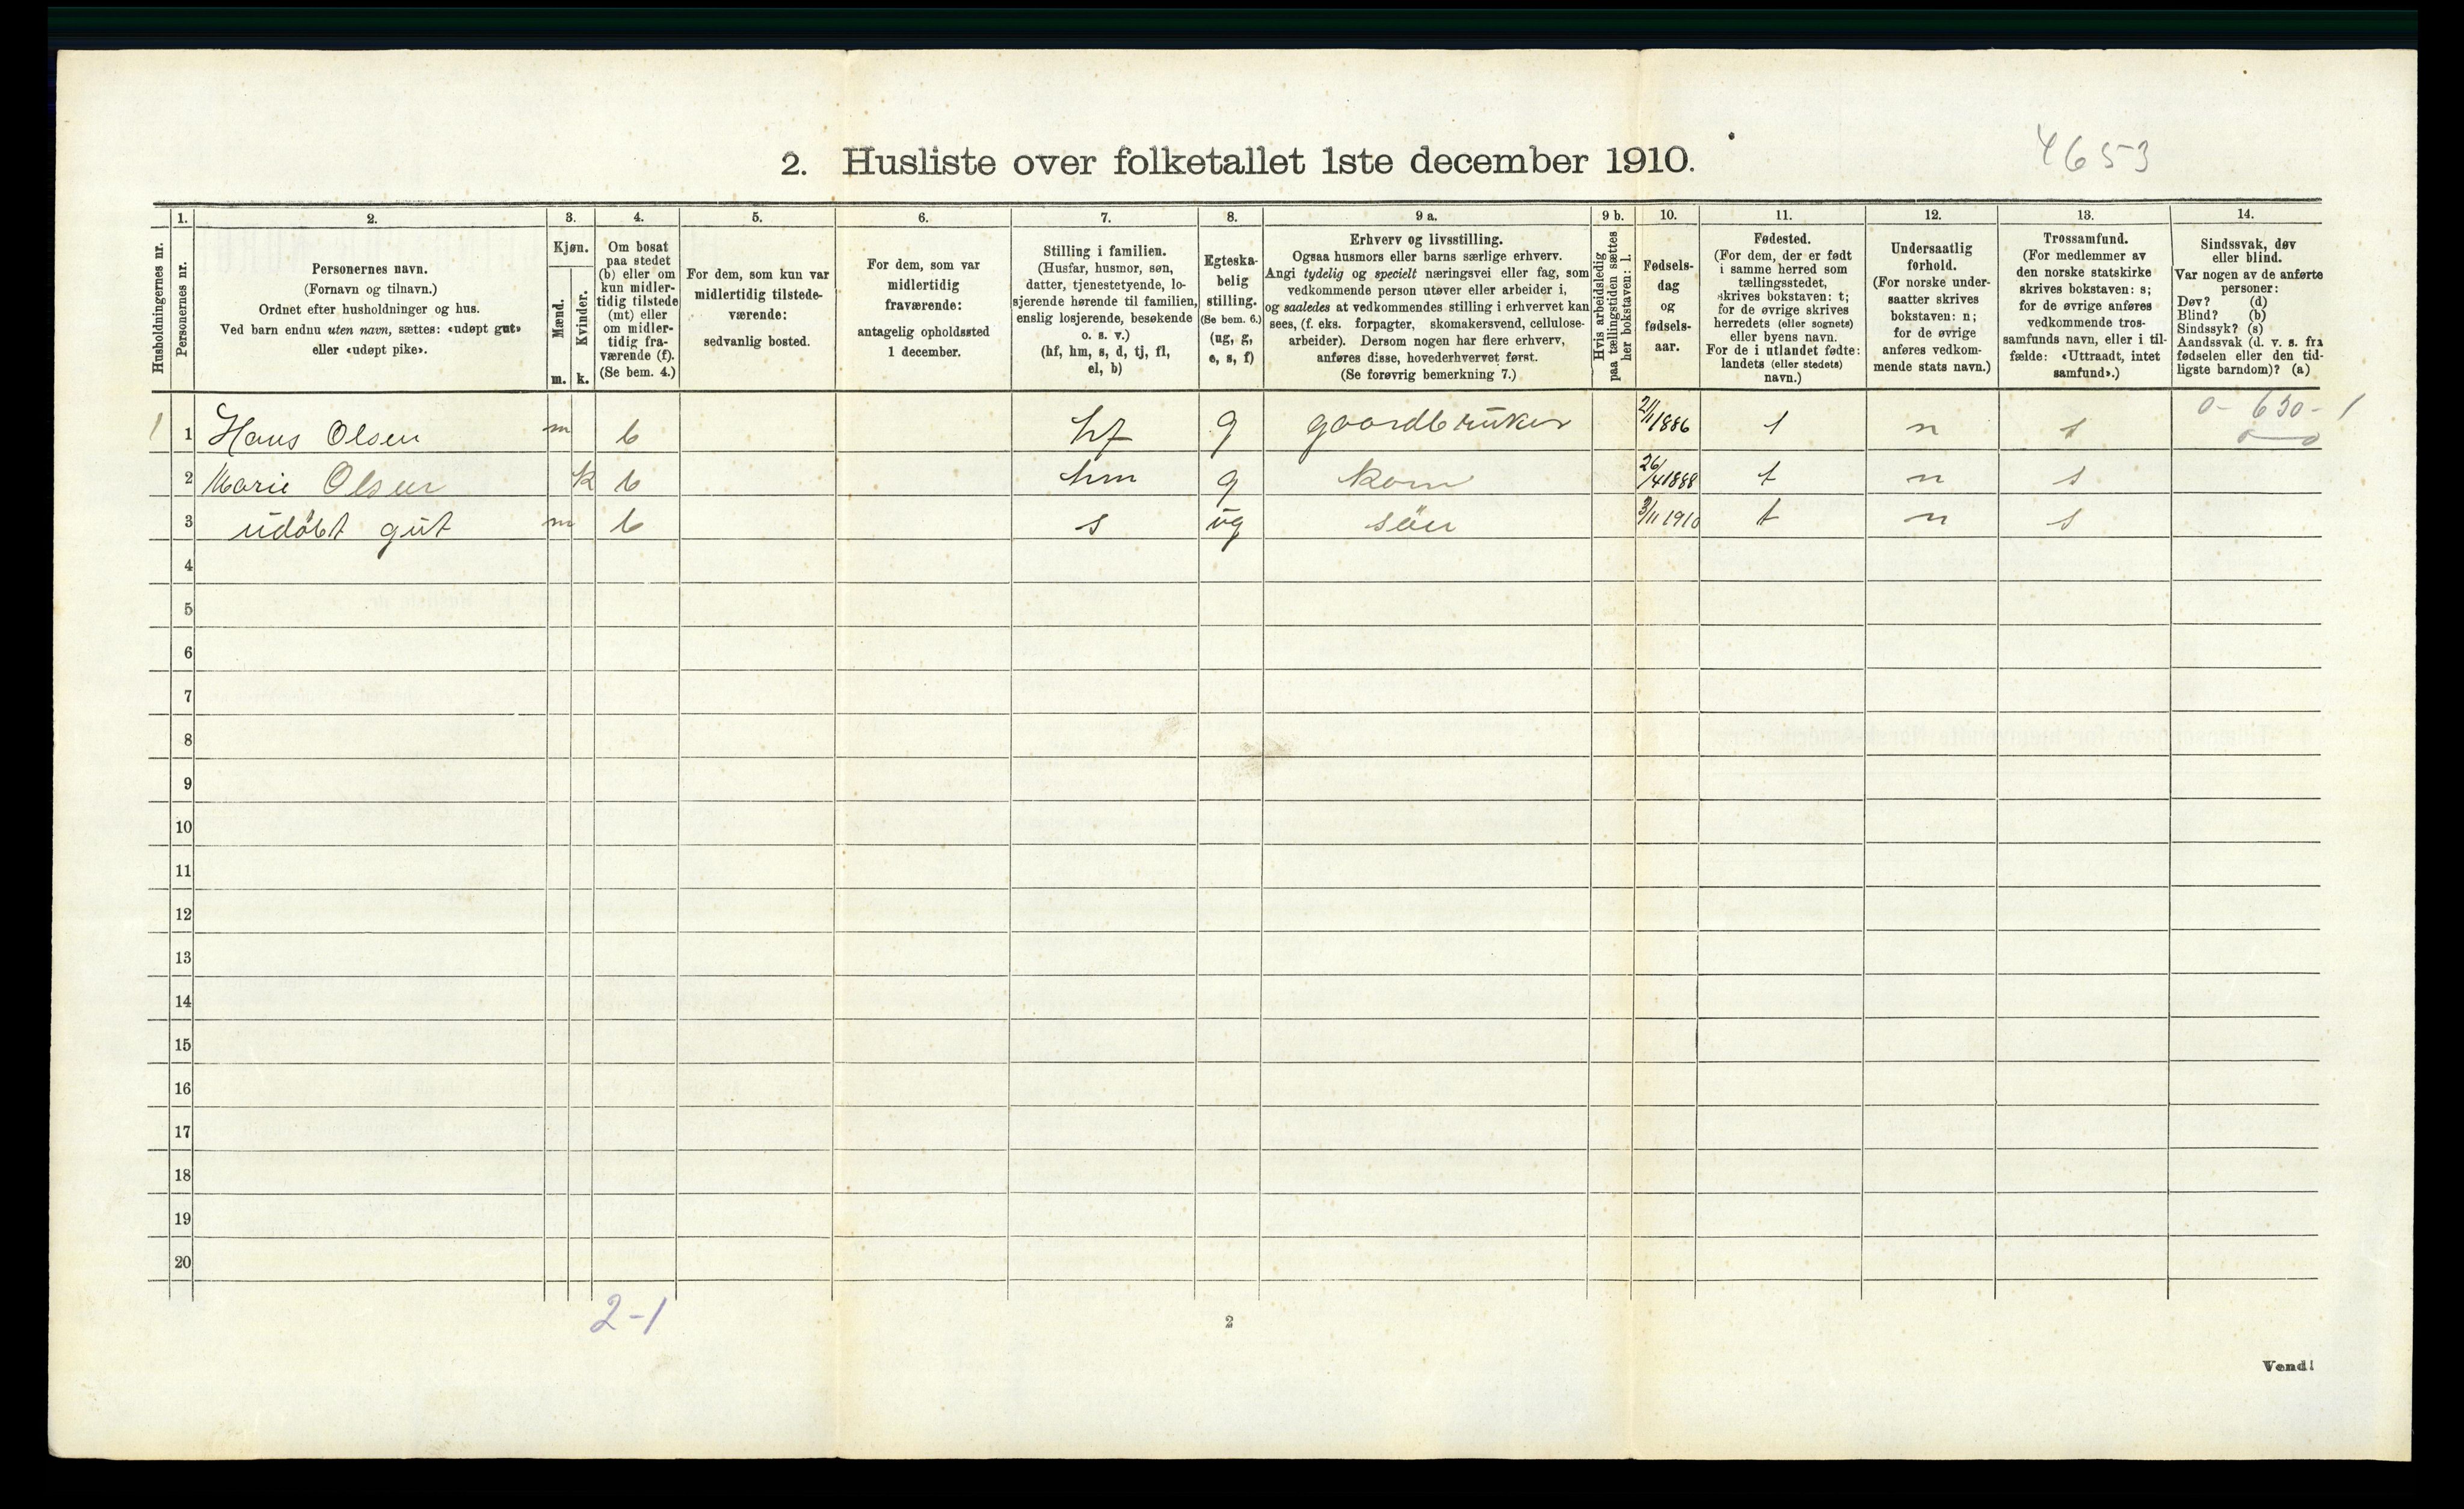 4653
2. Husliste over folketallet 1ste december 1910.
Husholdningernes nr.
1.
Personernes nr.
2.
Personernes navn.
(Fornavn og tilnavn.)
Ordnet efter husholdninger og hus.
Ved barn endnu uten navn, sættes: «udøpt gut»
eller «udøpt pike».
3.
Kjøn.
Mænd.
Kvinder.
m. k.
4.
Om bosat
paa stedet
(b) eller om
kun midler-
tidig tilstede
(mt) eller
om midler-
tidig fra-
værende (f).
(Se bem. 4.)
5.
For dem, som kun var
midlertidig tilstede-
værende:
sedvanlig bosted.
6.
For dem, som var
midlertidig
fraværende:
antagelig opholdssted
1 december.
7.
Stilling i familien.
(Husfar, husmor, søn,
datter, tjenestetyende, lo-
sjerende hørende til familien,
enslig losjerende, besøkende
o. s. v.)
(hf, hm, s, d, tj, fl,
el, b)
8.
Egteska-
belig
stilling.
(Se bem. 6.)
(ug, g,
e, s, f)
9 a.
Erhverv og livsstilling.
Ogsaa husmors eller barns særlige erhverv.
Angi tydelig og specielt næringsvei eller fag, som
vedkommende person utøver eller arbeider i,
og saaledes at vedkommendes stilling i erhvervet kan
sees, (f. eks. forpagter, skomakersvend, cellulose-
arbeider). Dersom nogen har flere erhverv,
anføres disse, hovederhvervet først.
(Se forøvrig bemerkning 7.)
9 b.
Hvis arbeidsledig
paa tællingstiden sættes
her bokstaven: l.
10.
Fødsels-
dag
og
fødsels-
aar.
11.
Fødested.
(For dem, der er født
i samme herred som
tællingsstedet,
skrives bokstaven: t;
for de øvrige skrives
herredets (eller sognets)
eller byens navn.
For de i utlandet fødte:
landets (eller stedets)
navn.)
12.
Undersaatlig
forhold.
(For norske under-
saatter skrives
bokstaven: n;
for de øvrige
anføres vedkom-
mende stats navn.)
13.
Trossamfund.
(For medlemmer av
den norske statskirke
skrives bokstaven: s;
for de øvrige anføres
vedkommende tros-
samfunds navn, eller i til-
fælde: «Uttraadt, intet
samfund».)
14.
Sindssvak, døv
eller blind.
Var nogen av de anførte
personer:
Døv? (d)
Blind? (b)
Sindssyk? (s)
Aandssvak (d. v. s. fra
fødselen eller den tid-
ligste barndom)? (a)
0 - 630 - 1
1 1 Hans Olsen m b hf g gaardbruker 2/11 1886 t n s
2 Marie Olsen k b hm g kone 26/4 1888 t n s
3 udøbt gut m b s ug søn 3/11 1910 t n s
4
5
6
7
8
9
10
11
12
13
14
15
16
17
18
19
20
2-1
2
Vend!